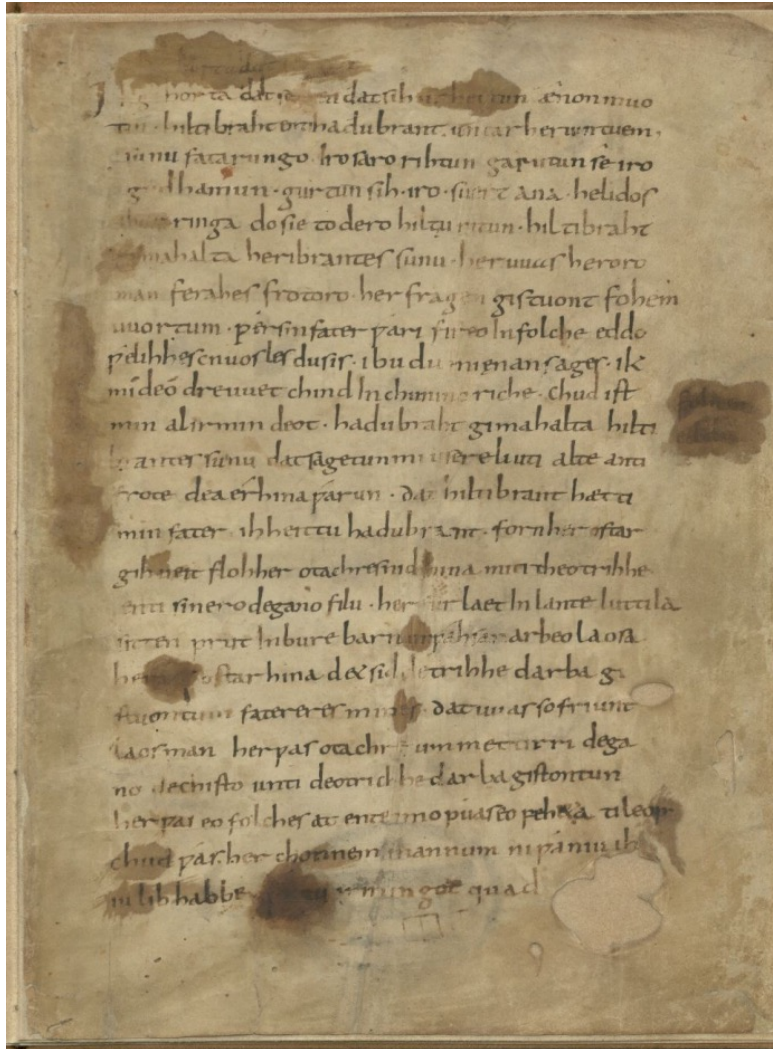 Ik gihorta dat seggen dat sih urhettun ænon muo
tin · hiltibraht enti hadubrant · untar heriun tuem ·
sunufatarungo · iro saro rihtun garutun sê iro
gudhamun · gurtun sih · iro · suert ana · helidos
ubar ringa do sie to dero hiltu ritun · hiltibraht
gimahalta heribrantes sunu · her uuas heroro
man ferahes frotoro · her fragen gistuont fohem
uuortum · ƿer sin fater ƿari fireo In folche eddo
ƿelihhes cnuosles du sis · ibu du mi enan sages · ik
mideo dre uuet chind In chunincriche · chud ist
min al irmin deot · hadubraht gimahalta hilti
brantes sunu dat sagetun mi usere liuti alte anti
frote dea erhina ƿarun · dat hiltibrant hætti
min fater · ih heittu hadubrant · forn her ostar
gihueit floh her otachres nid hina miti theotrihhe
enti sinero degano filu · her furlaet In lante luttila
sitten prut In bure barn unƿahsan arbeo laosa
ostar hina d& sid detrihhe darba gi
stuontum fatereres mines · dat uuas so friunt
laos man her ƿas otachre ummettirri dega
no dechisto unti deotrichhe darba gistontun
her ƿas eo folches at ente imo ƿuas eo feh&a ti leop
chud ƿas her chonnem mannum ni ƿaniu ih
iu lib habbe irmingot quad